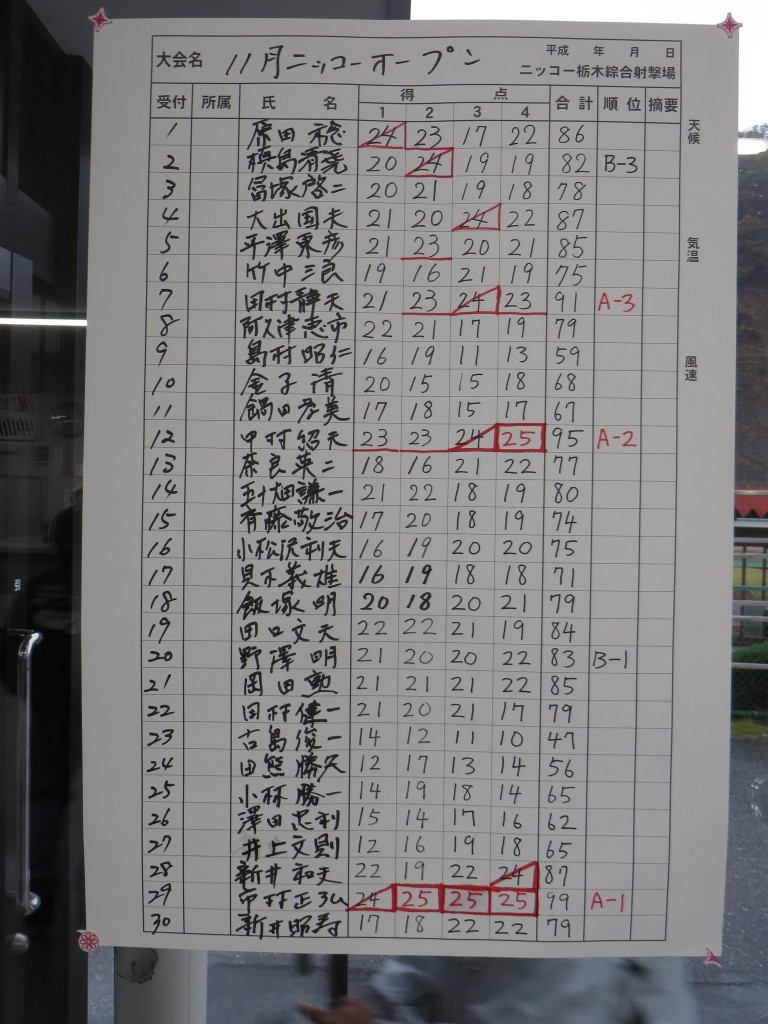 大会名 11月ニッコーオープン 平成 年 月 日
ニッコー栃木綜合射撃場
受付 所属 氏 名 得 点 合計 順位 摘要
1 2 3 4
1 原田 稔 24 23 17 22 86
2 槙島清堯 20 24 19 19 82 B-3
3 冨塚啓二 20 21 19 18 78
4 大出国夫 21 20 24 22 87
5 平澤東彦 21 23 20 21 85
6 竹中三良 19 16 21 19 75
7 田村静夫 21 23 24 23 91 A-3
8 阿久津忠市 22 21 17 19 79
9 島村昭仁 16 19 11 13 59
10 金子 清 20 15 15 18 68
11 鍋田孝美 17 18 15 17 67
12 中村紹夫 23 23 24 25 95 A-2
13 奈良英二 18 16 21 22 77
14 五十畑謙一 21 22 18 19 80
15 斉藤敬治 17 20 18 19 74
16 小松沢利夫 16 19 20 20 75
17 貝不義雄 16 19 18 18 71
18 飯塚 明 20 18 20 21 79
19 田口文夫 22 22 21 19 84
20 野澤 明 21 20 20 22 83 B-1
21 岡田 勲 21 21 21 22 85
22 田村健一 21 20 21 17 79
23 古島俊一 14 12 11 10 47
24 田熊勝矢 12 17 13 14 56
25 小林勝一 14 19 18 14 65
26 澤田忠利 15 14 17 16 62
27 井上文則 12 16 19 18 65
28 新井和夫 22 19 22 24 87
29 市村正弘 24 25 25 25 99 A-1
30 新井昭寿 17 18 22 22 79
天候
気温
風速